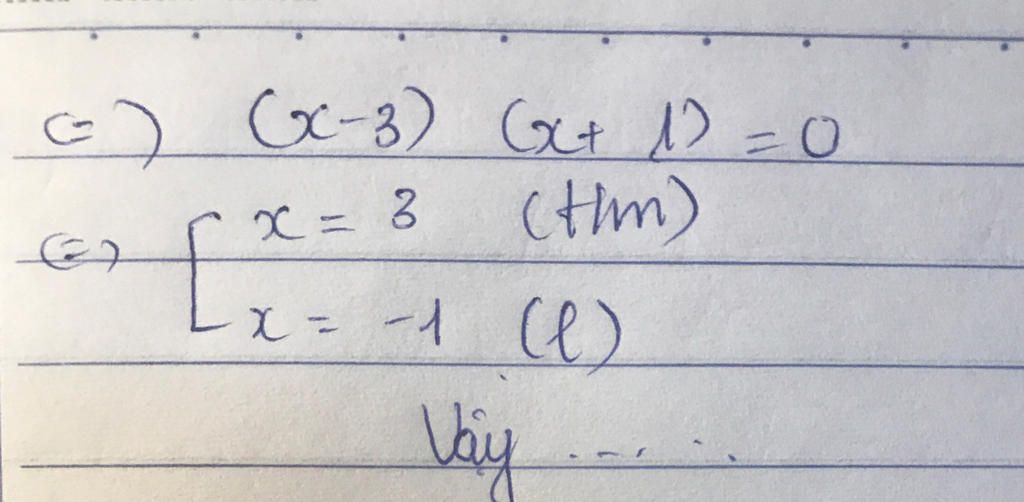 <=> (x-3) (x+1) = 0
<=> [ x = 3 (thm)
x = -1 (l)
Vậy .....